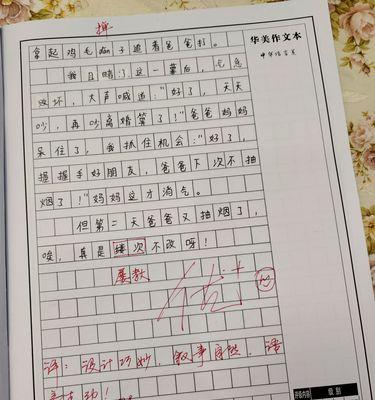 掸
拿起鸡毛dǎn子追着爸爸打。
我目睹了这一幕后，气急
败坏，大声喊道："好了，天天
吵，再吵离婚算了！"爸爸妈妈
呆住了，我抓住机会："好了，
握握手好朋友，爸爸下次不抽
烟了！"妈妈这才消气。
但第二天爸爸又抽烟了，
唉，真是搂次不改呀！
屡教
优+
评：设计巧妙，叙事自然，语
言生动！
华美作文本
级别